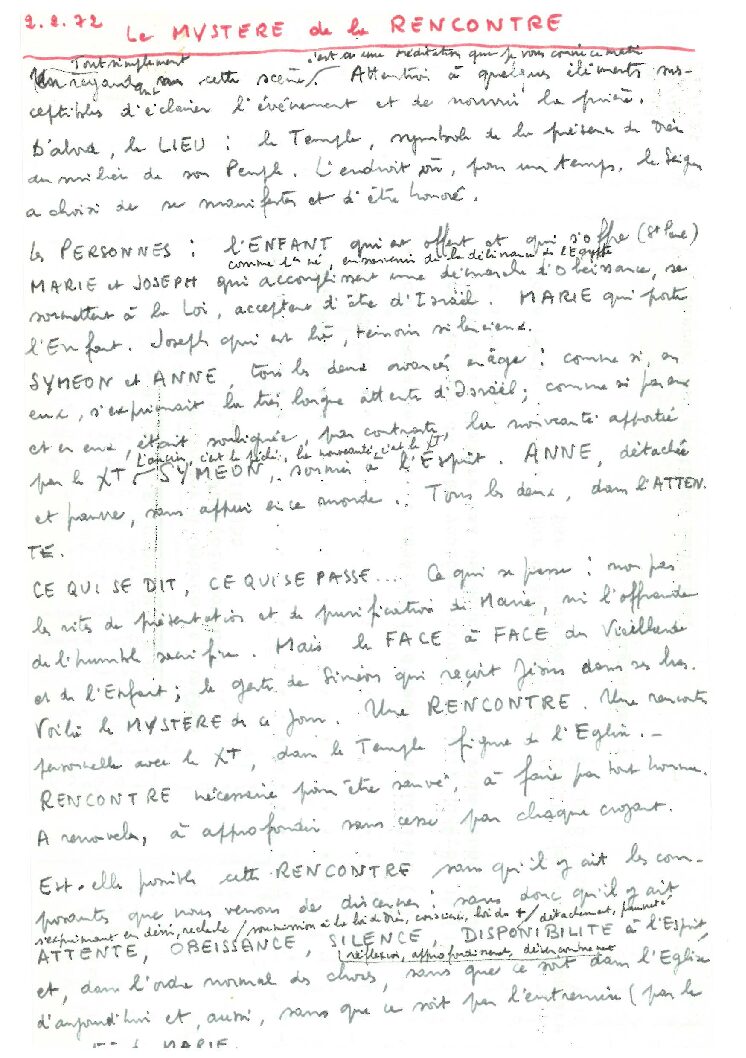 2.2.72 Le MYSTERE de la RENCONTRE
Tout simplement c'est à une méditation que je vous convie ce matin
En regardant cette scène. Attention à quelques éléments sus-
ceptibles d'éclairer l'événement et de nourrir la prière.
D'abord, le LIEU : le Temple, symbole de la présence de Dieu
au milieu de son Peuple. L'endroit où, pour un temps, le Seign
a choisi de se manifester et d'être honoré.
Les PERSONNES : l'ENFANT qui est offert et qui s'offre (St Paul)
comme 1er né, en souvenir de la délivrance de l'Egypte
MARIE et JOSEPH qui accomplissent une démarche d'Obéissance, se
soumettent à la Loi, acceptent d'être d'Israël. MARIE qui porte
l'Enfant. Joseph qui est là, témoin silencieux.
SYMEON et ANNE, tous les deux avancés en âge : comme si, en
eux, s'exprimait la très longue attente d'Israël ; comme si par eux
et en eux, était soulignée, par contraste, la nouveauté apportée
L'ancien, c'est le péché, la nouveauté, c'est le XT
par le XT. SYMEON, soumis à l'Esprit. ANNE, détachée
et pauvre, sans appui en ce monde. Tous les deux, dans l'ATTEN.
TE.
CE QUI SE DIT, CE QUI SE PASSE.... Ce qui se passe : non pas
les rites de présentation et de purification de Marie, ni l'offrande
de l'humble sacrifice. Mais le FACE à FACE du Vieillard
et de l'Enfant ; le geste de Siméon qui reçoit Jésus dans ses bras.
Voilà le MYSTERE de ce jour. Une RENCONTRE. Une rencontre
personnelle avec le XT, dans le Temple figure de l'Eglise. -
RENCONTRE nécessaire pour être sauvé, à faire par tout homme.
A renouveler, à approfondir sans cesse par chaque croyant.
Est-elle possible cette RENCONTRE sans qu'il y ait les com-
posantes que nous venons de discerner : sans donc qu'il y ait
s'expriment en désir, recherche / soumission à la loi de Dieu, conscience, loi du + / détachement, pauvreté
ATTENTE, OBEISSANCE, SILENCE, DISPONIBILITE à l'Esprit,
réflexion, approfondissement,
et, dans l'ordre normal des choses, sans que ce soit dans l'Eglise
d'aujourd'hui et, aussi, sans que ce soit par l'entremise (par la
MARIE.